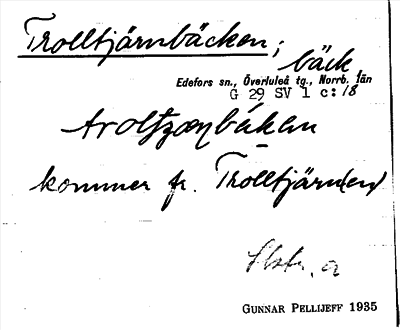 Trolltjärnbäcken; bäck
Edefors sn., Överluleå tg., Norrb. län
G 29 SV 1 c:18
kommer fr. Trolltjärn(en)
GUNNAR PELLIJEFF 1935